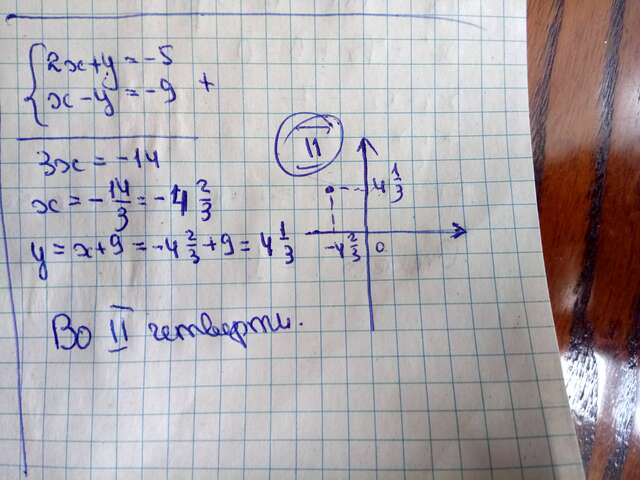 2x+y=-5
x-y=-9 +
3x=-14
x=-14/3=-4 2/3
y=x+9=-4 2/3+9=4 1/3
II
4 1/3
-4 2/3 0
Во II четверти.